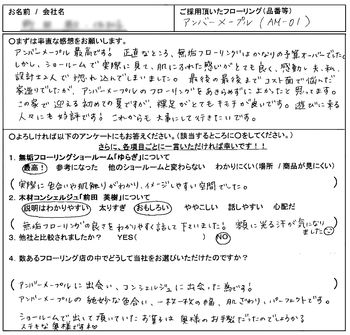 お名前 / 会社名
ご採用頂いたフローリング(品番等)
アンバーメープル (AM-01)
○まずは率直な感想をお願いします。
アンバーメープル最高です。正直なところ、無垢フローリングはかなりの予算オーバーでした。
しかし、ショールームで実際に見て、肌にふれた感じがとても良く、感動し、夫、私、
設計士3人で惚れ込んでしまいました。最後の最後までコスト面で悩んだ
家造りでしたが、アンバーメープルのフローリングをあきらめずによかったと思ってます。
この家で迎える初めての夏ですが、裸足がとてもキモチが良いです。遊びに来る
人々にも好評です。これからも大事にしていきたいです。
○よろしければ以下のアンケートにもお答えください。(該当するところに○をしてください。)
さらに、各項目ごとに一言いただければ幸いです!!
1. 無垢フローリングショールーム「ゆらぎ」について
最高! 参考になった 他のショールームと変わらない わかりにくい(場所 / 商品が見にくい)
(実際に色合いや肌触りがわかり、イメージしやすい空間でした。)
2. 木材コンシェルジュ「前田 美樹」について
説明はわかりやすい 太りすぎ おもしろい ややこしい 話しやすい 心配だ
(無垢フローリングの良さをわかりやすく話して下さいました。額に光る汗が気になりました)
3. 他社と比較されましたか? YES( ) NO
4. 数あるフローリング店の中でどうして当社をお選びいただけたのですか?
アンバーメープルに出会い、コンシェルジュに出会った為です。
アンバーメープルの絶妙な色合い、一枚一枚の幅、肌ざわり、パーフェクトです。
ショールームで出して頂いていたお菓子は奥様のお手製だったのでしょうか?
ステキな奥様ですね